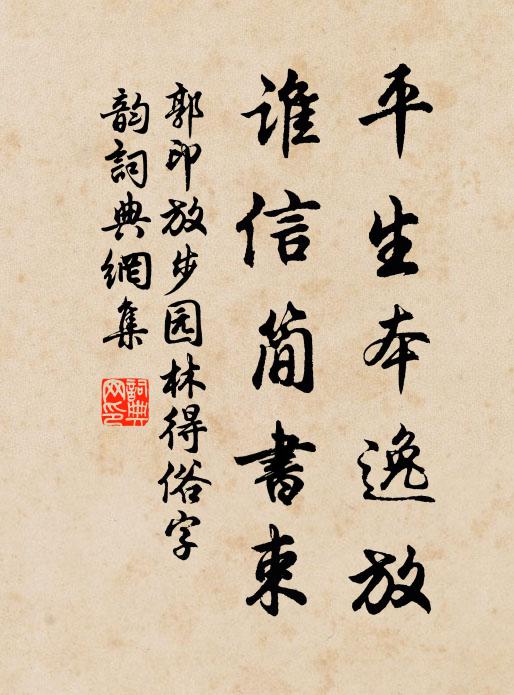 平生本逸放
誰信簡書束
郭印放步园林得俗字
韵詞典網集
詞典網印